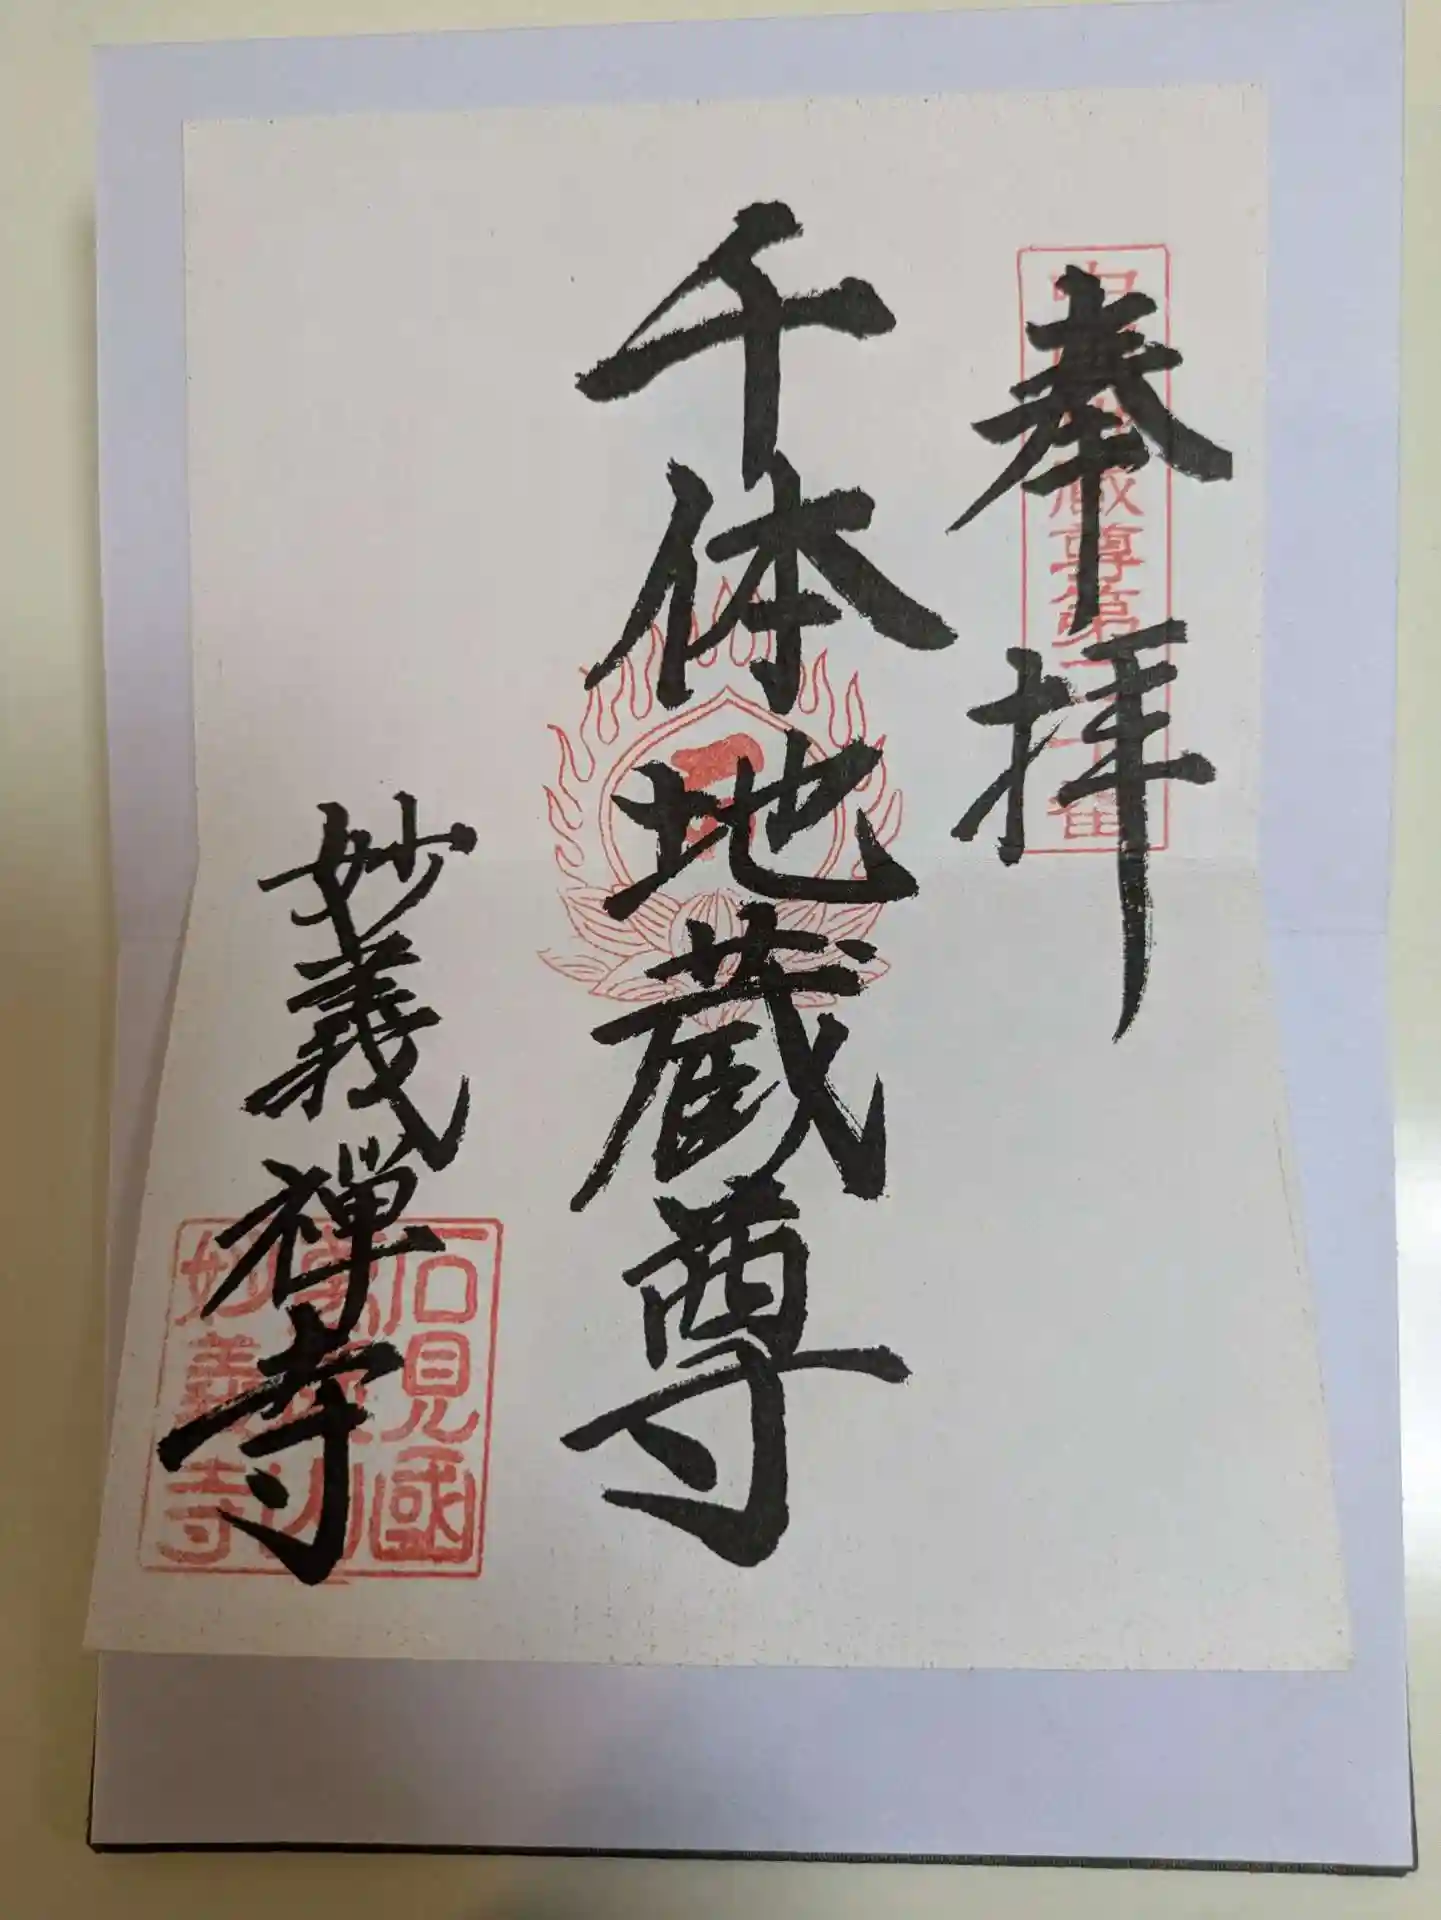 奉拝
蔵尊第
千体地蔵尊
妙義禅寺
石見國
山
妙義寺